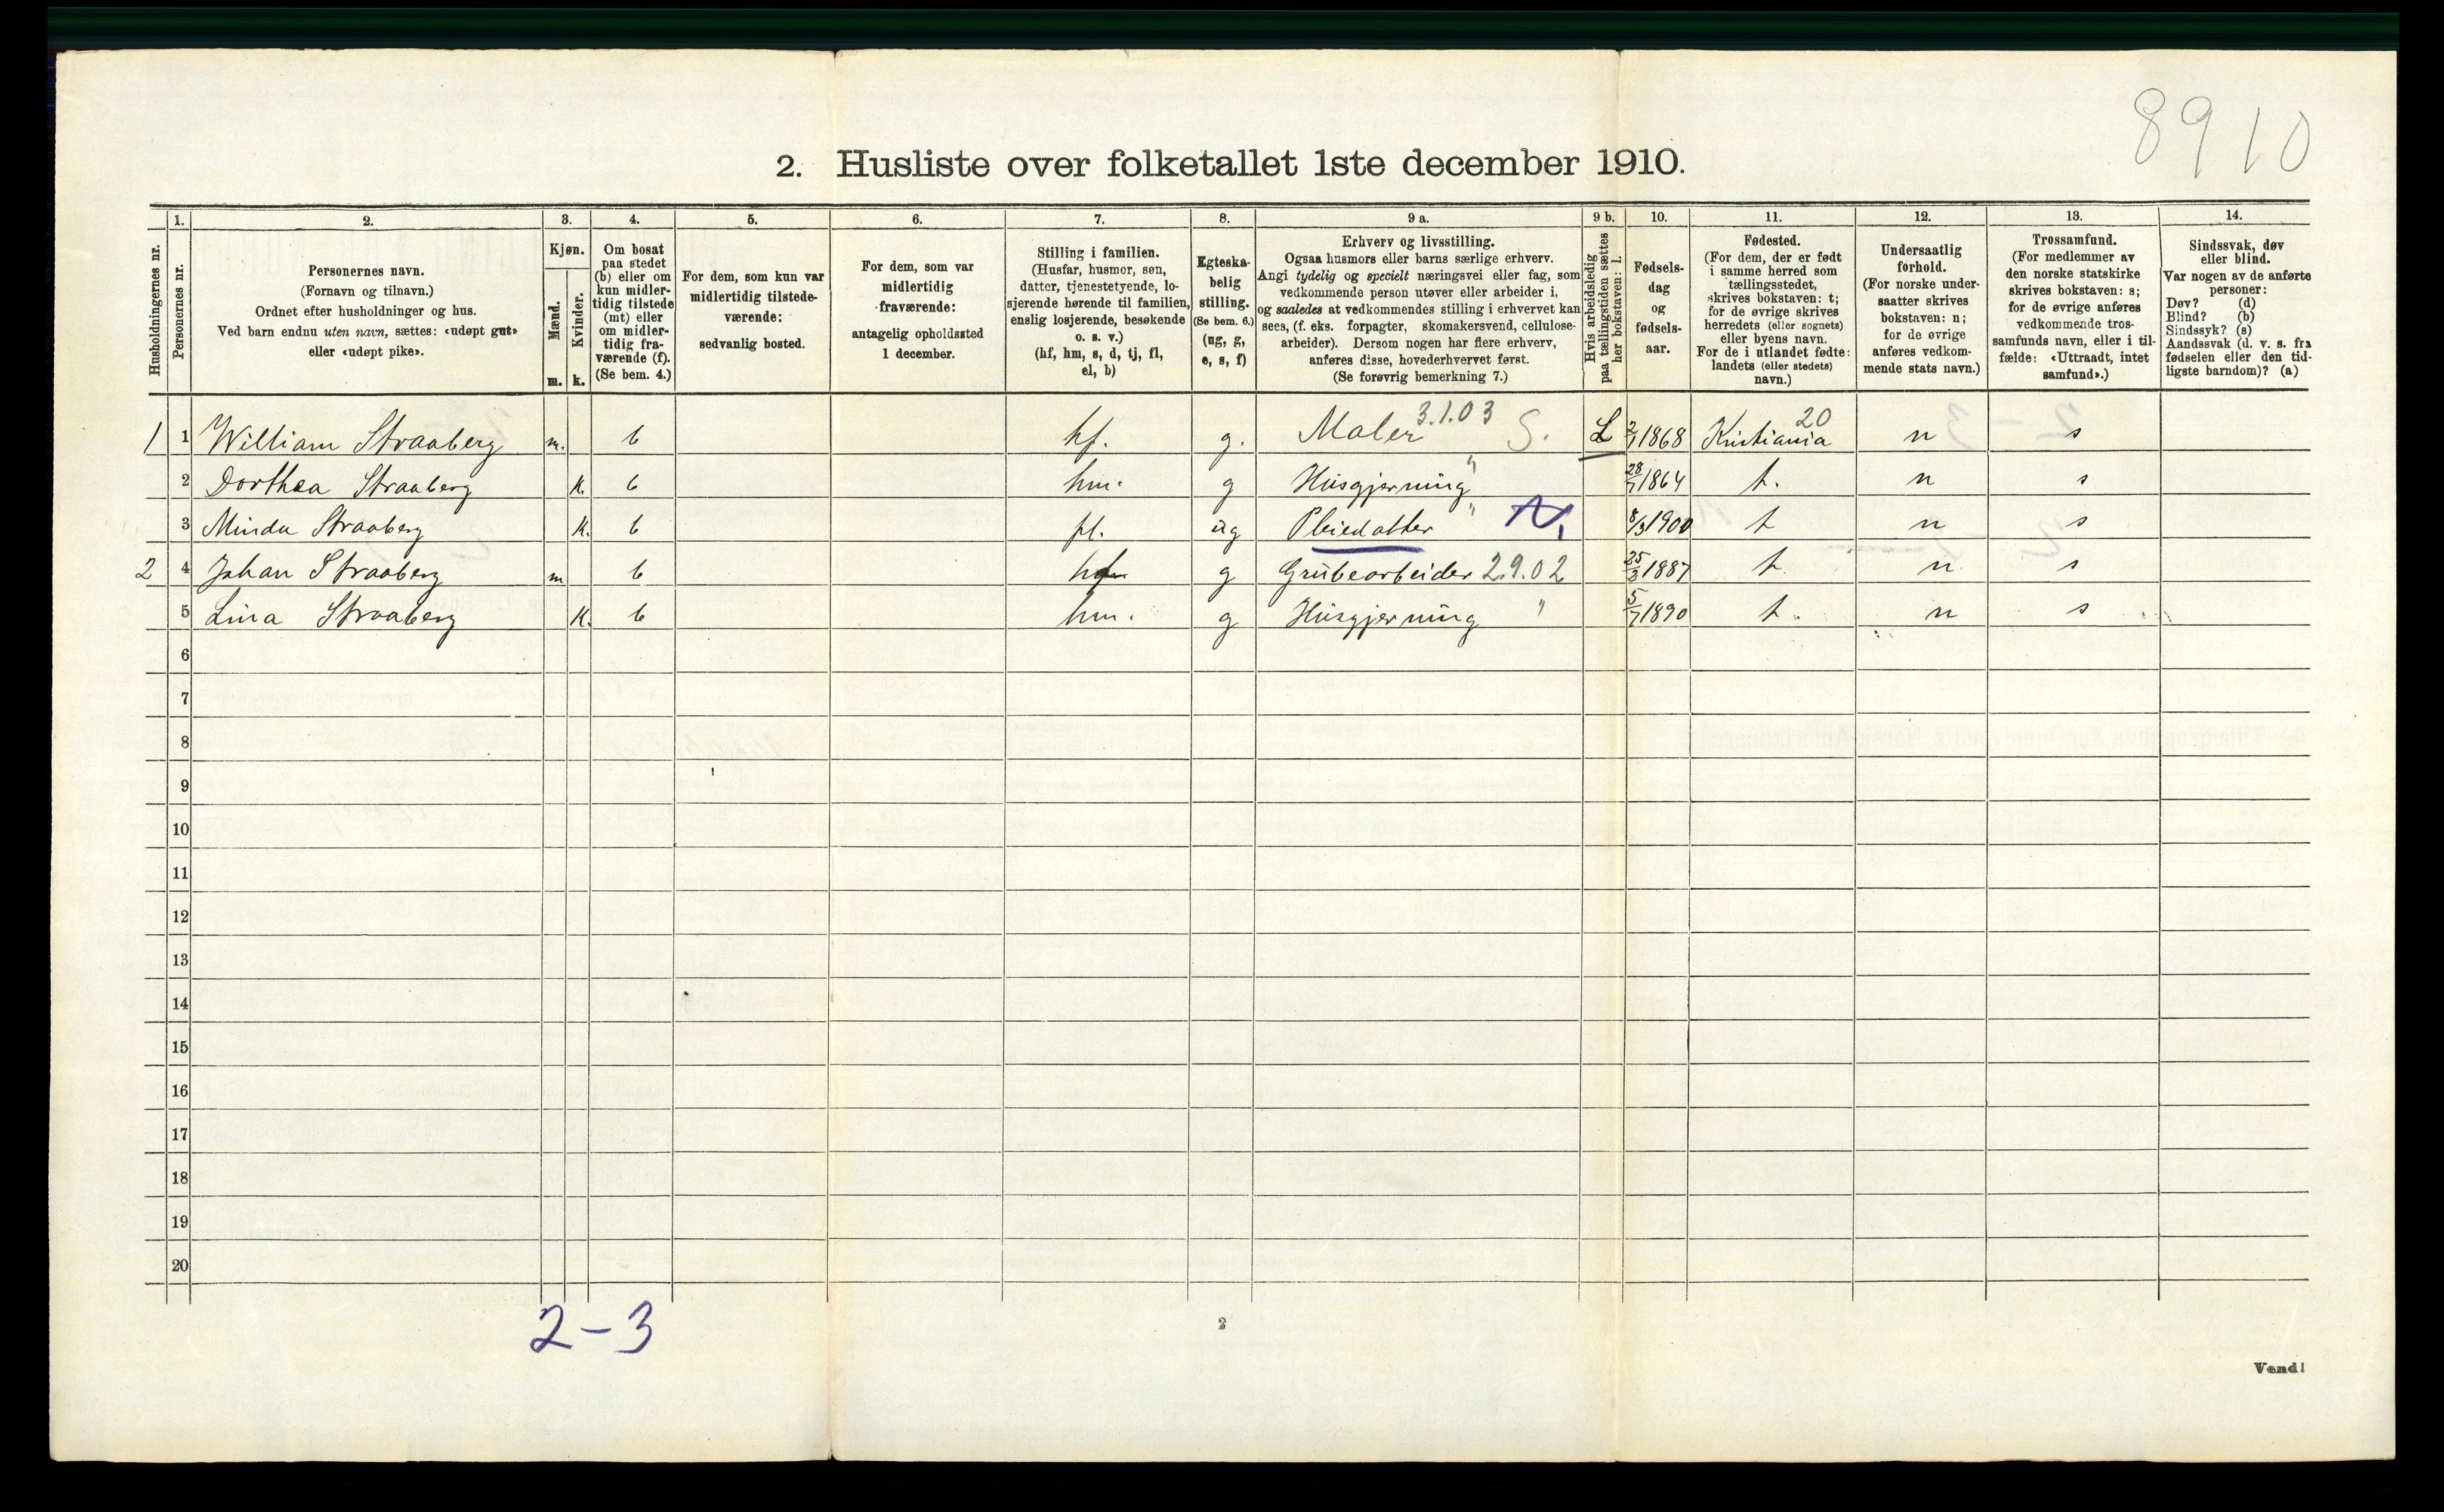 8910
2. Husliste over folketallet 1ste december 1910.
1. 2. 3. 4. 5. 6. 7. 8. 9 a. 9 b. 10. 11. 12. 13. 14.
Husholdningernes nr.
Personernes nr.
Personernes navn.
(Fornavn og tilnavn.)
Ordnet efter husholdninger og hus.
Ved barn endnu uten navn, sættes: «udøpt gut»
eller «udøpt pike».
Kjøn.
Mænd.
Kvinder.
m. k.
Om bosat
paa stedet
(b) eller om
kun midler-
tidig tilstede
(mt) eller
om midler-
tidig fra-
værende (f).
(Se bem. 4.)
For dem, som kun var
midlertidig tilstede-
værende:
sedvanlig bosted.
For dem, som var
midlertidig
fraværende:
antagelig opholdssted
1 december.
Stilling i familien.
(Husfar, husmor, søn,
datter, tjenestetyende, lo-
sjerende hørende til familien,
enslig losjerende, besøkende
o. s. v.)
(hf, hm, s, d, tj, fl,
el, b)
Egteska-
belig
stilling.
(Se bem. 6.)
(ug, g,
e, s, f)
Erhverv og livsstilling.
Ogsaa husmors eller barns særlige erhverv.
Angi tydelig og specielt næringsvei eller fag, som
vedkommende person utøver eller arbeider i,
og saaledes at vedkommendes stilling i erhvervet kan
sees, (f. eks. forpagter, skomakersvend, cellulose-
arbeider). Dersom nogen har flere erhverv,
anføres disse, hovederhvervet først.
(Se forøvrig bemerkning 7.)
Hvis arbeidsledig
paa tællingstiden sættes
her bokstaven: l.
Fødsels-
dag
og
fødsels-
aar.
Fødested.
(For dem, der er født
i samme herred som
tællingsstedet,
skrives bokstaven: t;
for de øvrige skrives
herredets (eller sognets)
eller byens navn.
For de i utlandet fødte:
landets (eller stedets)
navn.)
Undersaatlig
forhold.
(For norske under-
saatter skrives
bokstaven: n;
for de øvrige
anføres vedkom-
mende stats navn.)
Trossamfund.
(For medlemmer av
den norske statskirke
skrives bokstaven: s;
for de øvrige anføres
vedkommende tros-
samfunds navn, eller i til-
fælde: «Uttraadt, intet
samfund».)
Sindssvak, døv
eller blind.
Var nogen av de anførte
personer:
Døv? (d)
Blind? (b)
Sindssyk? (s)
Aandssvak (d. v. s. fra
fødselen eller den tid-
ligste barndom)? (a)
1 1 William Straaberg m. b hf. g. Maler 3.1.03 S. L 2/1 1868 Kristiania 20 n s
2 Dorthea Straaberg k. b hm. g Husgjerning " 28/7 1864 t. n s
3 Minda Straaberg k. b pl. ug Pleiedatter " N. 8/3 1900 t n s
2 4 Johan Straaberg m b hf g Grubearbeider 2.9.02 25/3 1887 t n s
5 Lina Straaberg k. b hm. g Husgjerning " 5/7 1890 t. n s
6
7
8
9
10
11
12
13
14
15
16
17
18
19
20
2-3
2
Vend!